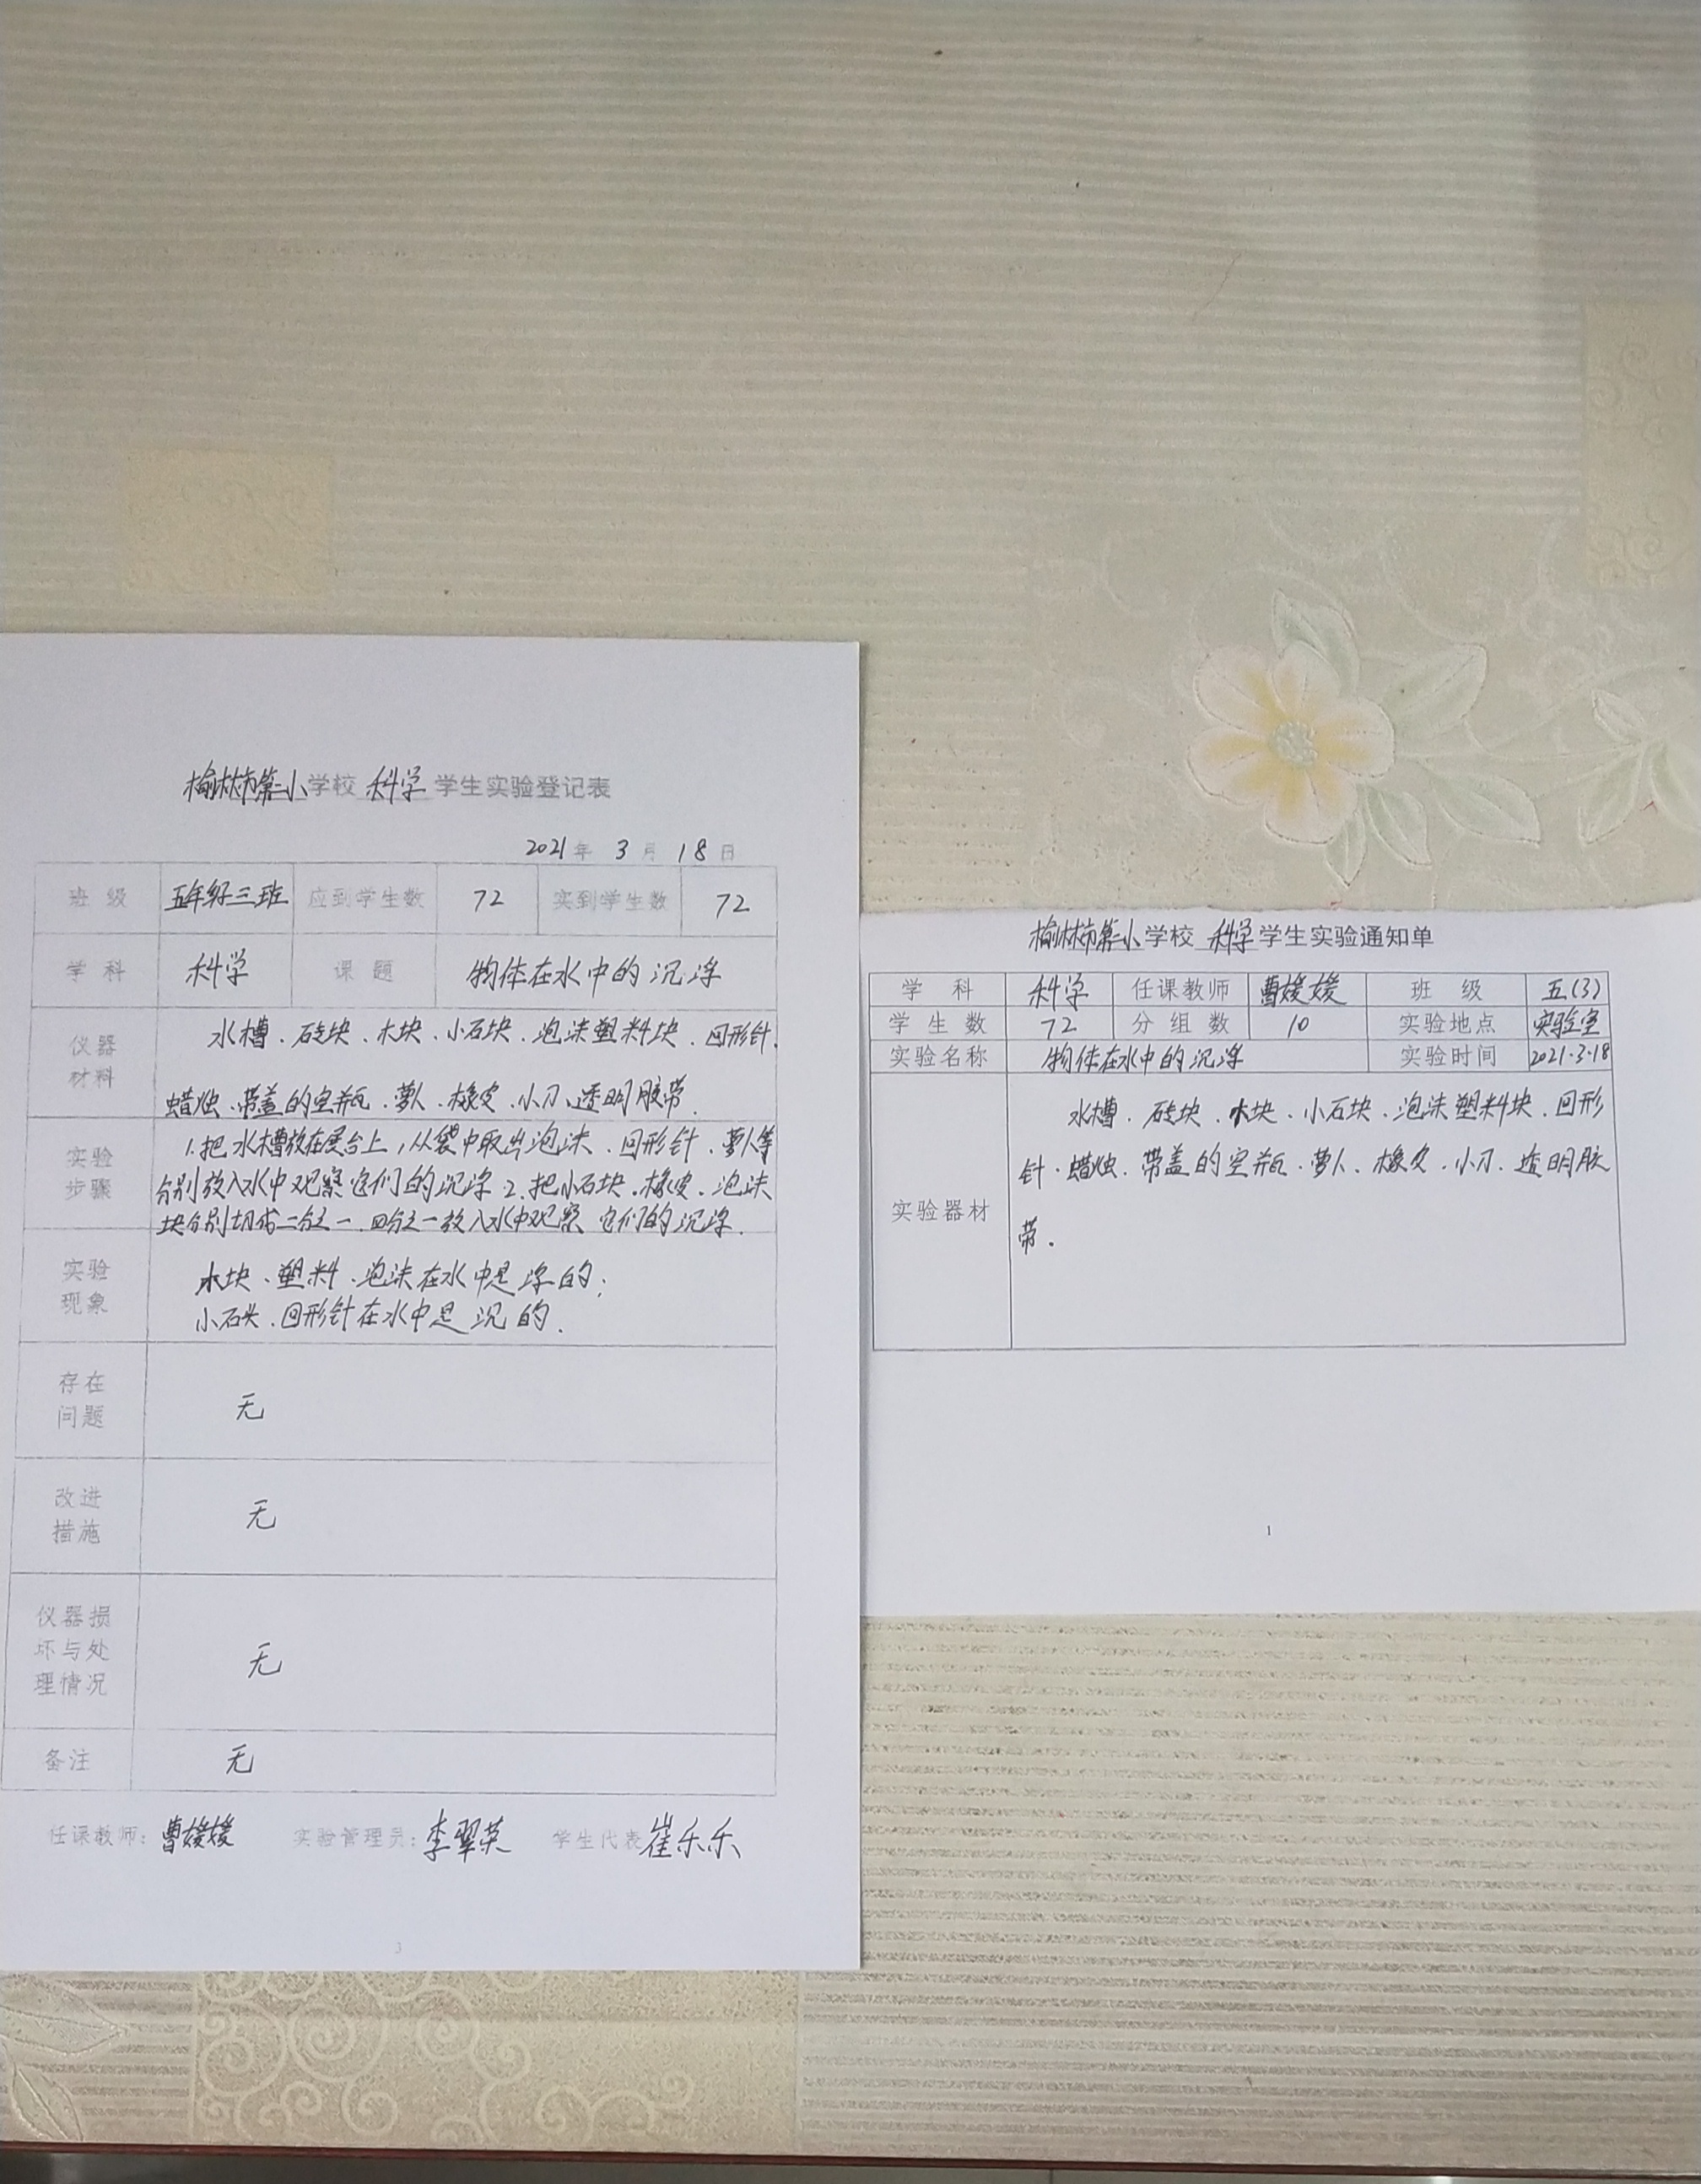 榆林市第二小学校 科学 学生实验登记表
2021年 3月 18日
班级 五年级三班 应到学生数 72 实到学生数 72
学科 科学 课题 物体在水中的沉浮
仪器材料
水槽、砖块、木块、小石块、泡沫塑料块、回形针、
蜡烛、带盖的空瓶、萝卜、橡皮、小刀、透明胶带.
实验步骤
1.把水槽放在展台上,从袋中取出泡沫、回形针、萝卜等
分别放入水中观察它们的沉浮 2.把小石块、橡皮、泡沫
块分别切成二分之一、四分之一放入水中观察它们的沉浮.
实验现象
木块、塑料、泡沫在水中是浮的;
小石头、回形针在水中是沉的.
存在问题 无
改进措施 无
仪器损坏与处理情况 无
备注 无
任课教师:曹媛媛 实验管理员:李翠荣 学生代表 崔乐乐
3
榆林市第二小学校 科学 学生实验通知单
学科 科学 任课教师 曹媛媛 班级 五(3)
学生数 72 分组数 10 实验地点 实验室
实验名称 物体在水中的沉浮 实验时间 2021·3·18
实验器材
水槽、砖块、木块、小石块、泡沫塑料块、回形
针、蜡烛、带盖的空瓶、萝卜、橡皮、小刀、透明胶
带.
1